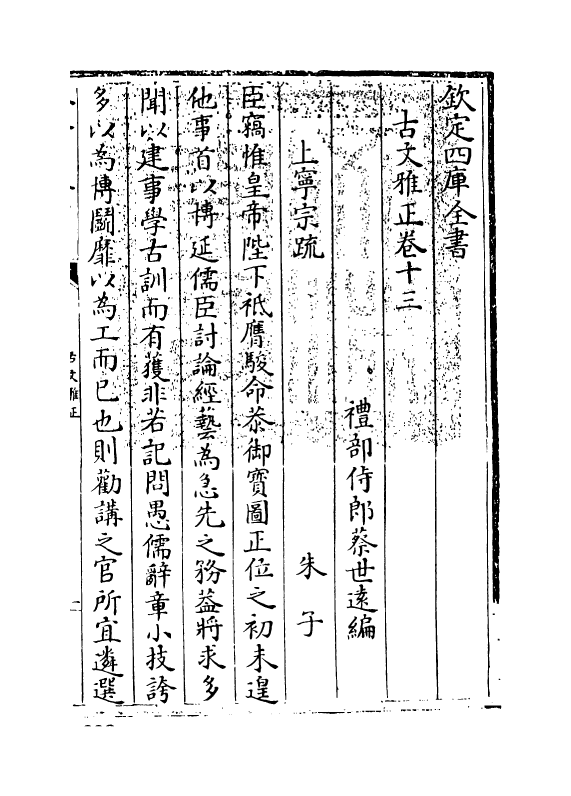 欽定四庫全書
古文雅正卷十三
禮部侍郎蔡世遠編
上寧宗疏　朱子
臣竊惟皇帝陛下祇膺駿命恭御寶圖正位之初未遑
他事首以博延儒臣討論經藝為急先之務葢將求多
聞以建事學古訓而有獲非若記問愚儒辭章小技誇
多以為博鬬靡以為工而已也則勸講之官所宜遴選
古文雅正